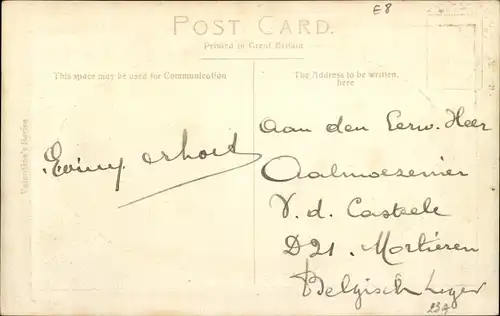 E8
POST CARD.
Printed in Great Britain
This space may be used for Communication
The Address to be written here
Valentine's Series
aan den Eerw. Heer
Aalmoezenier
V. d. Casteele
D21. Mortieren
Belgisch Leger
23A